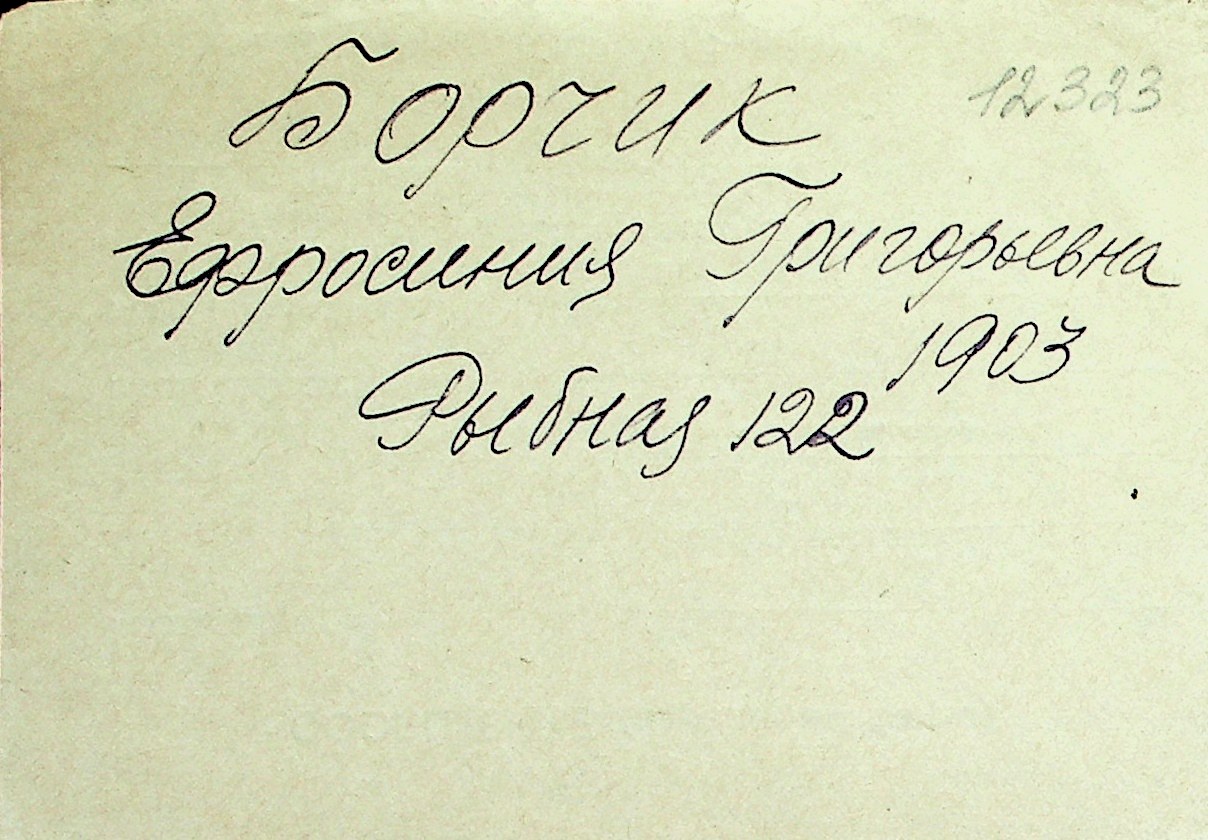 Борчик 12323
Ефросиния Григорьевна
1903
Рыбная 122